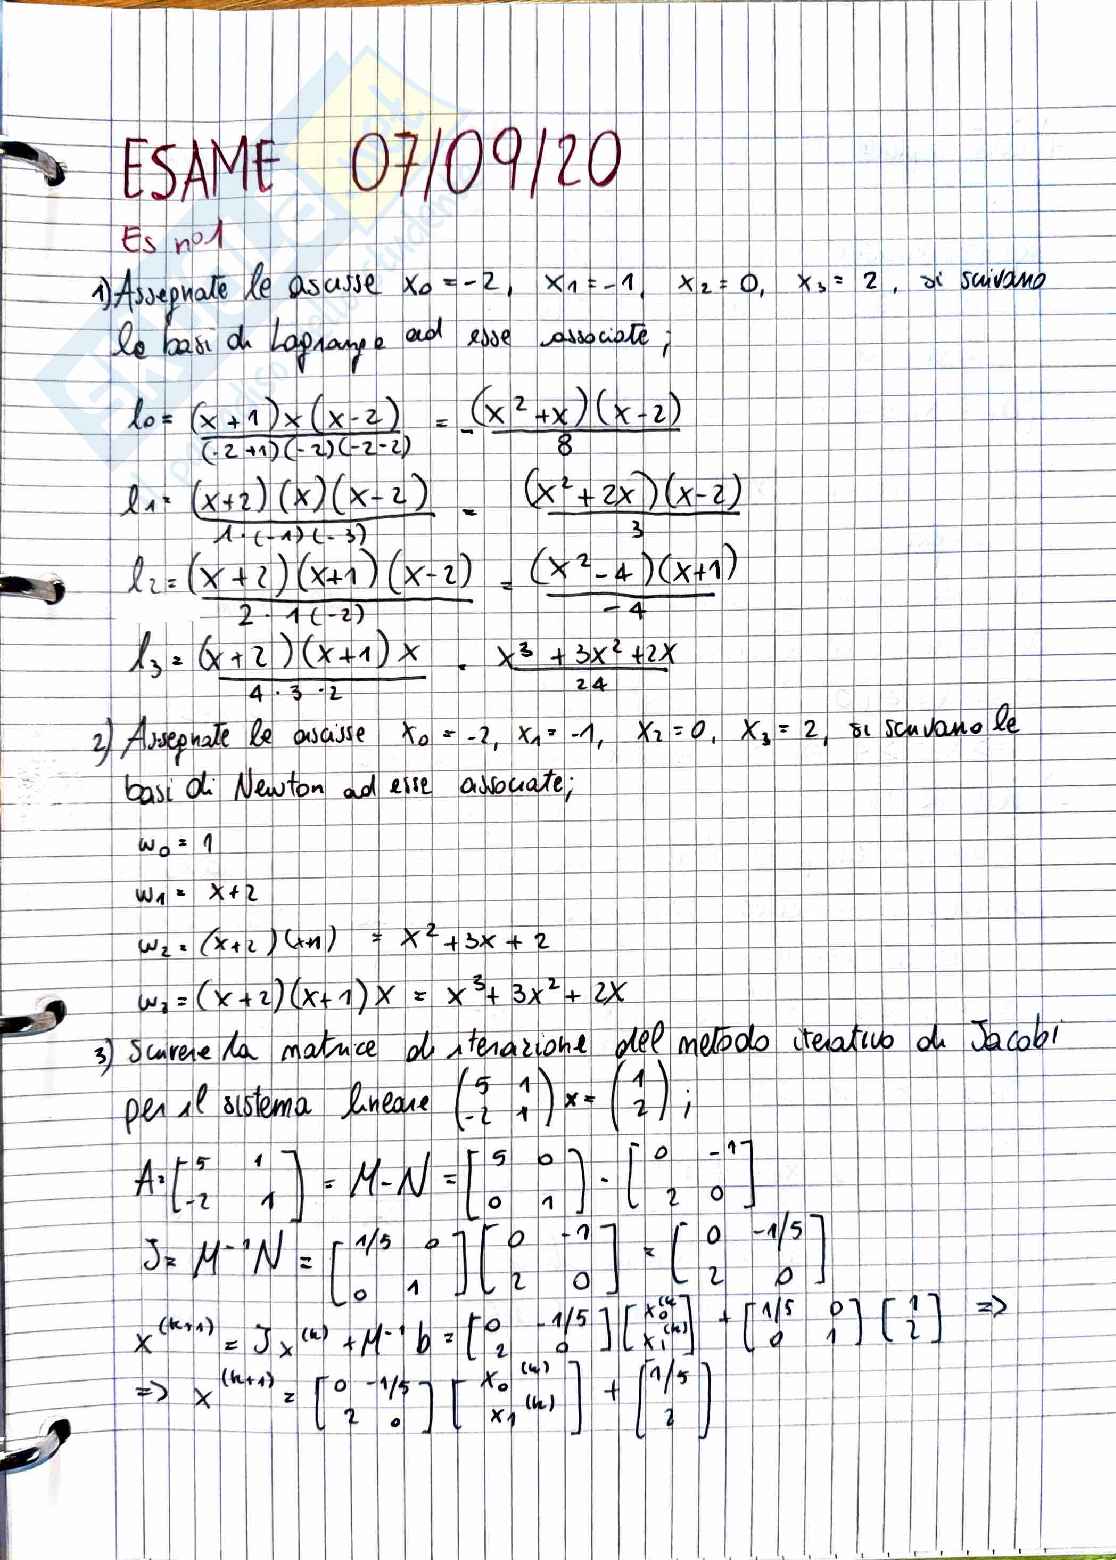 ESAME 07/09/20
Es n°1
1) Assegnate le ascisse x₀ = -2, x₁ = -1, x₂ = 0, x₃ = 2, si scrivano
le basi di Lagrange ad esse associate;
l₀ = (x+1)x(x-2) / (-2+1)(-2)(-2-2) = - (x²+x)(x-2) / 8
l₁ = (x+2)(x)(x-2) / 1·(-1)(-3) = (x²+2x)(x-2) / 3
l₂ = (x+2)(x+1)(x-2) / 2·1(-2) = (x²-4)(x+1) / -4
l₃ = (x+2)(x+1)x / 4·3·2 = x³+3x²+2x / 24
2) Assegnate le ascisse x₀ = -2, x₁ = -1, x₂ = 0, x₃ = 2, si scrivano le
basi di Newton ad esse associate;
w₀ = 1
w₁ = x+2
w₂ = (x+2)(x+1) = x²+3x+2
w₃ = (x+2)(x+1)x = x³+3x²+2x
3) Scrivere la matrice di iterazione del metodo iterativo di Jacobi
per il sistema lineare (5 1; -2 1) x = (1; 2);
A = [5 1; -2 1] = M-N = [5 0; 0 1] - [0 -1; 2 0]
J = M⁻¹N = [1/5 0; 0 1] [0 -1; 2 0] = [0 -1/5; 2 0]
x⁽ᵏ⁺¹⁾ = Jx⁽ᵏ⁾ + M⁻¹b = [0 -1/5; 2 0] [x₀⁽ᵏ⁾; x₁⁽ᵏ⁾] + [1/5 0; 0 1] [1; 2] =>
=> x⁽ᵏ⁺¹⁾ = [0 -1/5; 2 0] [x₀⁽ᵏ⁾; x₁⁽ᵏ⁾] + [1/5; 2]